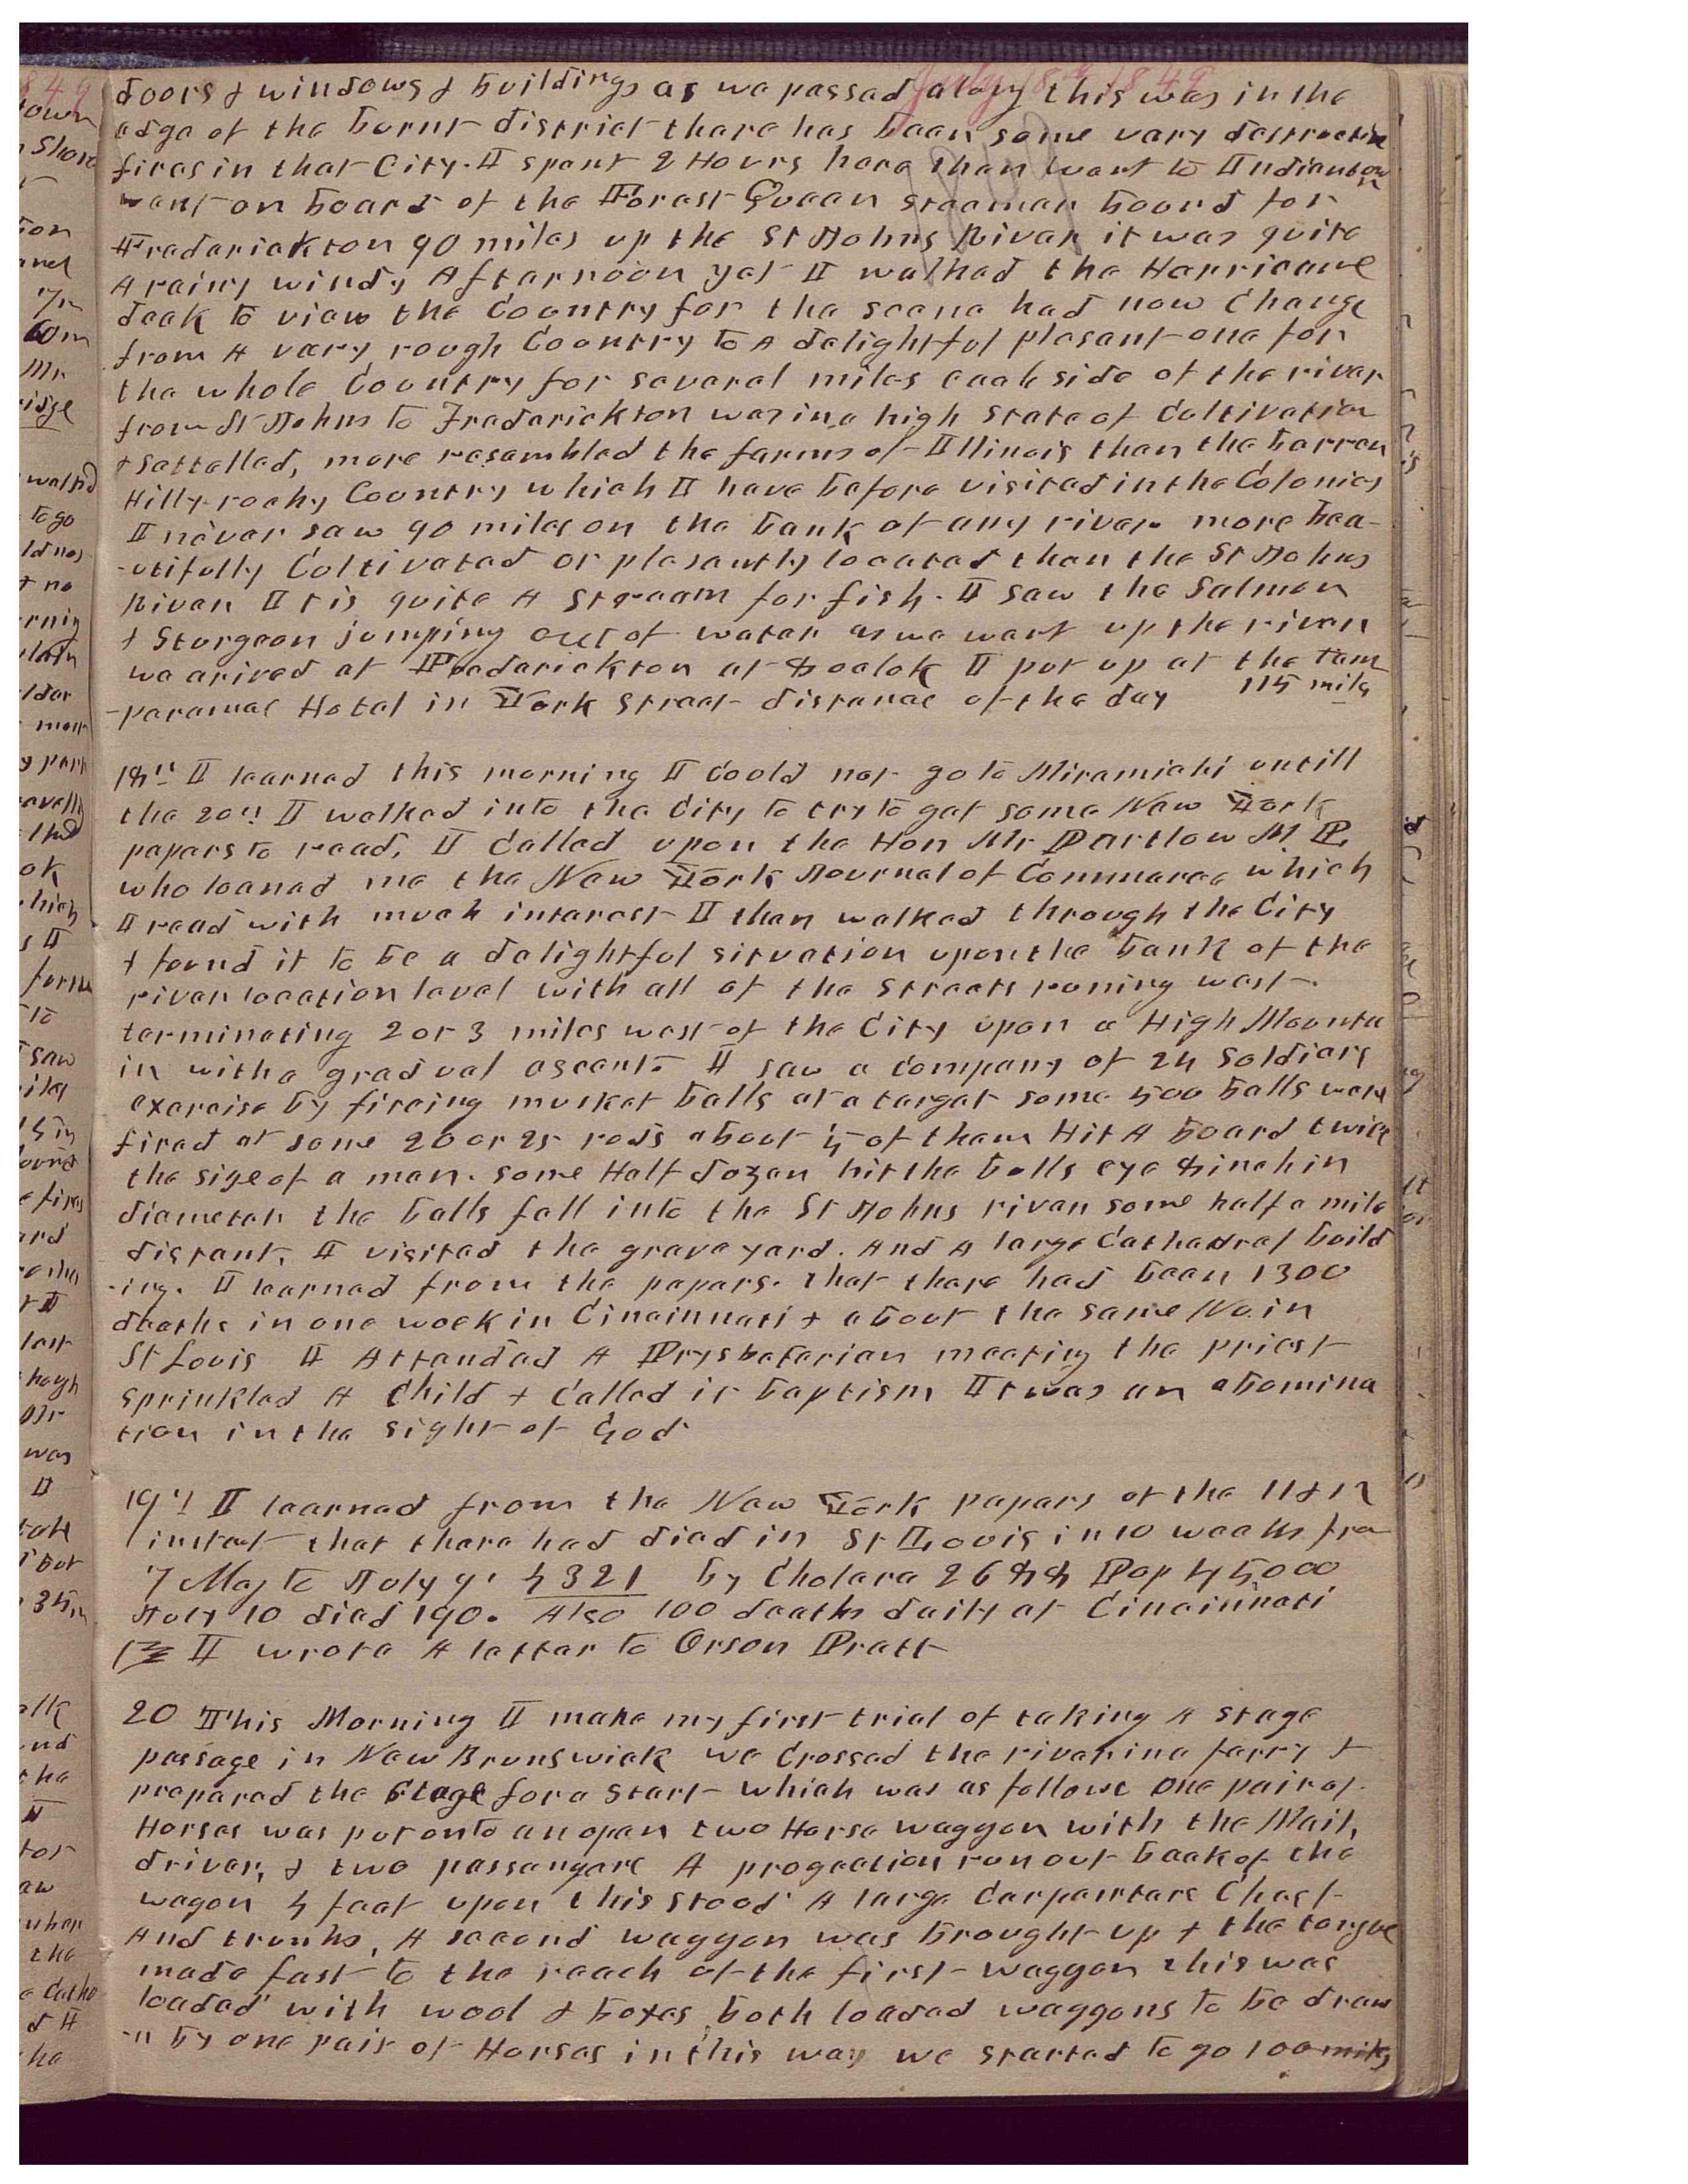 July 18th 1849
doors & windows & buildings as we passed along this was in the
edge of the burnt district there has been some very destructive
fires in that City. I spent 2 Hours here then went to Indiantown
went on board of the Forest Queen steamer bound for
Frederickton 90 miles up the St Johns River it was quite
A rainy windy Afternoon yet I walked the Harricane
deck to view the Country for the scene had now Change
from A very rough Country to A delightful plesant one for
the whole Country for several miles each side of the river
from St Johns to Frederickton was in a high state of Cultivation
& settelled, more resembled the farms of Illinois than the barren
Hilly rocky Country which I have before visited in the Colonies
I never saw 90 miles on the bank of any river more bea-
-utifully Cultivated or plesantly located than the St Johns
River It is quite A stream for fish. I saw the Salmon
& Sturgeon jumping out of water as we went up the river
we arived at Frederickton at 8 oclok I put up at the tem
-perance Hotel in York street distance of the day 115 mile
18th I learned this morning I Could not go to Miramichi untill
the 20th I walked into the City to try to get some New York
papers to read, I Called upon the Hon Mr Partlow M P,
who loaned me the New York Journal of Commerce which
I read with much interest I then walked through the City
& found it to be a delightful situation upon the bank of the
river location level with all of the streets runing west
terminating 2 or 3 miles west of the City upon a High Mounta
in with a gradual ascent. I saw a Company of 24 Soldiers
exercise by fireing musket balls at a target some 500 balls were
fired at some 20 or 25 rods about ¼ of them Hit A board twice
the size of a man. some Half dozen hit the bulls eye 8 inch in
diameter the balls fell into the St Johns river some half a mile
distant, I visited the grave yard. And A large Cathedral build
-ing. I learned from the papers. that there had been 1300
deaths in one week in Cincinnati & about the same No in
St Louis I Attended A Prysbeterian meeting the priest
sprinkled A Child & Called it baptism It was an abomina
tion in the sight of God
19th I learned from the New York papers of the 11 & 12
instant that there had died in St Louis in 10 weeks fro
7 May to July 9th 4321 by Cholera 2688 Pop 45,000
July 10 died 190. Also 100 deaths daily at Cincinnati
I wrote A letter to Orson Pratt
20 This Morning I make my first trial of taking A stage
passage in New Brunswick we Crossed the river in a ferry &
prepared the Stage for a start which was as follows one pair of
Horses was put onto an open two Horse waggon with the Mail,
driver, & two passangers A progection run out back of the
wagon 4 feet upon this stood A large Carpenters Chest
And trunks, A second waggon was brought up & the tongue
made fast to the reach of the first waggon this was
loaded with wool & boxes, both loaded waggons to be draw
-n by one pair of Horses in this way we started to go 100 miles